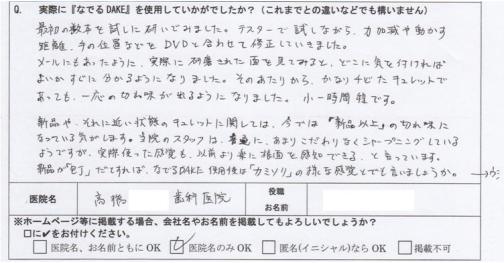 Q. 実際に『なでるDAKE』を使用していかがでしたか?（これまでとの違いなどでも構いません）
最初の数本を試しに研いでみました。テスターで試しながら、力加減や動かす
距離、手の位置などをDVDと合わせて修正していきました。
メールにもあったように、実際に研磨された面を見てみると、どこに気を付ければ
よいかすぐに分かるようになりました。そのあたりから、かなりチビたキュレットで
あっても、一応の切れ味が出るようになりました。小一時間程です。
新品や、それに近い状態のキュレットに関しては、今では「新品以上」の切れ味に
なっている気がします。当院のスタッフは、普通に、あまりこだわりなくシャープニングしている
ようですが、実際使った感覚も、以前より楽に根面を感知できる、と言っています。
新品が「包丁」だとすれば、なでるDAKE使用後は「カミソリ」の様な感覚とでも言いましょうか。
医院名
高橋 歯科医院
役職
お名前
※ホームページ等に掲載する場合、会社名やお名前を掲載してもよろしいでしょうか?
□に✔をお付けください。
□ 医院名、お名前ともにOK ☑ 医院名のみOK □ 匿名(イニシャル)ならOK □ 掲載不可